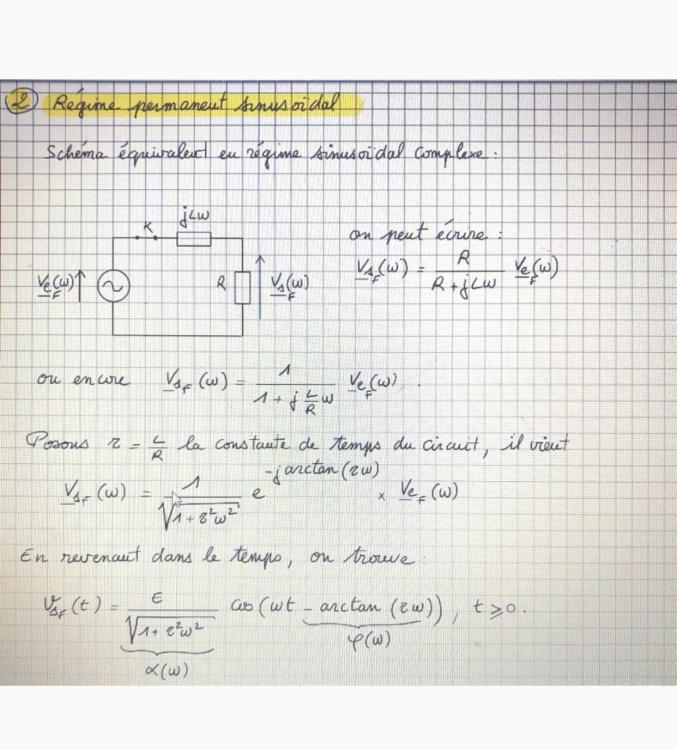 ② Régime permanent sinusoïdal
Schéma équivalent en régime sinusoïdal complexe :
K jLω
V̲e_F(ω) R V̲s_F(ω)
on peut écrire :
V̲s_F(ω) = R / (R + jLω) V̲e_F(ω)
ou encore V̲s_F(ω) = 1 / (1 + j L/R ω) V̲e_F(ω) .
Posons τ = L/R la constante de temps du circuit, il vient
V̲s_F(ω) = 1 / √(1 + τ²ω²) e^(-j arctan(τω)) × V̲e_F(ω)
En revenant dans le temps, on trouve :
v_s_F(t) = E / √(1 + τ²ω²) cos(ωt - arctan(τω)) , t ⩾ 0.
α(ω) φ(ω)